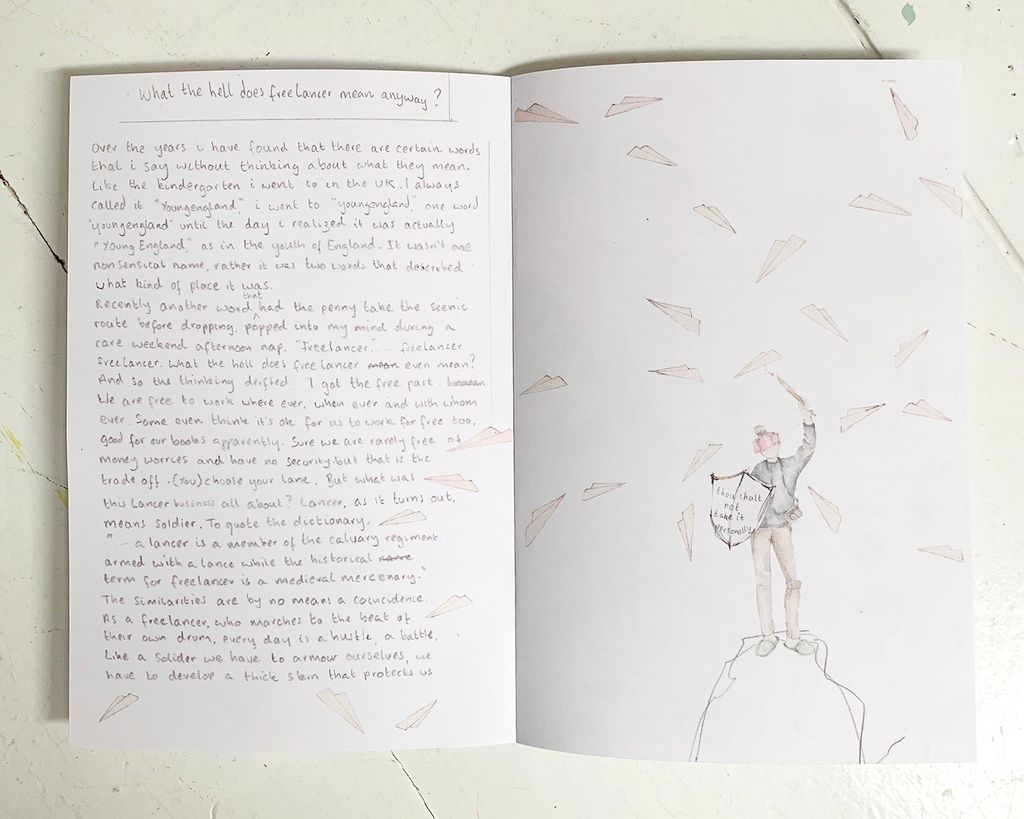 What the hell does freelancer mean anyway?
Over the years i have found that there are certain words
that i say without thinking about what they mean.
Like the kindergarten i went to in the UK. I always
called it "Youngengland," i went to "youngengland," one word
'youngengland' until the day i realized it was actually
"Young England," as in the youth of England. It wasn't one
nonsensical name, rather it was two words that described
what kind of place it was.
Recently another word that had the penny take the scenic
route before dropping, popped into my mind during a
rare weekend afternoon nap. "Freelancer"... freelancer
Freelancer. What the hell does freelancer mean even mean?
And so the thinking drifted. I got the free part.
We are free to work where ever, when ever and with whom
ever. Some even think it's ok for us to work for free too,
good for our books apparently. Sure we are rarely free of
money worries and have no security but that is the
trade off. (You) choose your lane. But what was
this Lancer business all about? Lancer, as it turns out,
means soldier. To quote the dictionary.
".. a lancer is a member of the calvary regiment
armed with a lance while the historical name
term for freelancer is a medieval mercenary."
The similarities are by no means a coincidence.
As a freelancer, who marches to the beat of
their own drum, every day is a hustle, a battle.
Like a solider we have to armour ourselves, we
have to develop a thick skin that protects us
thou shalt
not
take it
personally